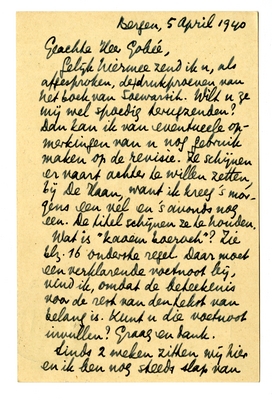 Bergen, 5 April 1940
Geachte Heer Gobée,
Gelijk hiermee zend ik u, als
afgesproken, de drukproeven van
het boek van Soewarsih. Wilt u ze
mij wel spoedig terugzenden?
Dan kan ik van eventueele op-
merkingen van u nog gebruik
maken op de revisie. Ze schijnen
er vaart achter te willen zetten,
bij De Haan, want ik kreeg 's mor-
gens een vel en 's avonds nog
een. De titel schijnen ze te houden.
Wat is "kaoem koeroeh"? Zie
blz. 16 onderste regel. Daar moet
een verklarende voetnoot bij,
vind ik, omdat de beteekenis
voor de rest van den tekst van
belang is. Kunt u die voetnoot
invullen? Graag en dank.
Sinds 2 weken zitten wij hier
en ik ben nog steeds slap van